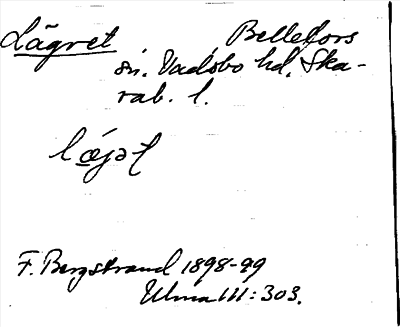 Lägret Bellefors
sn. Vadsbo hd. Ska-
rab. l.
F. Bergstrand 1898-99
Ulma 111:303.